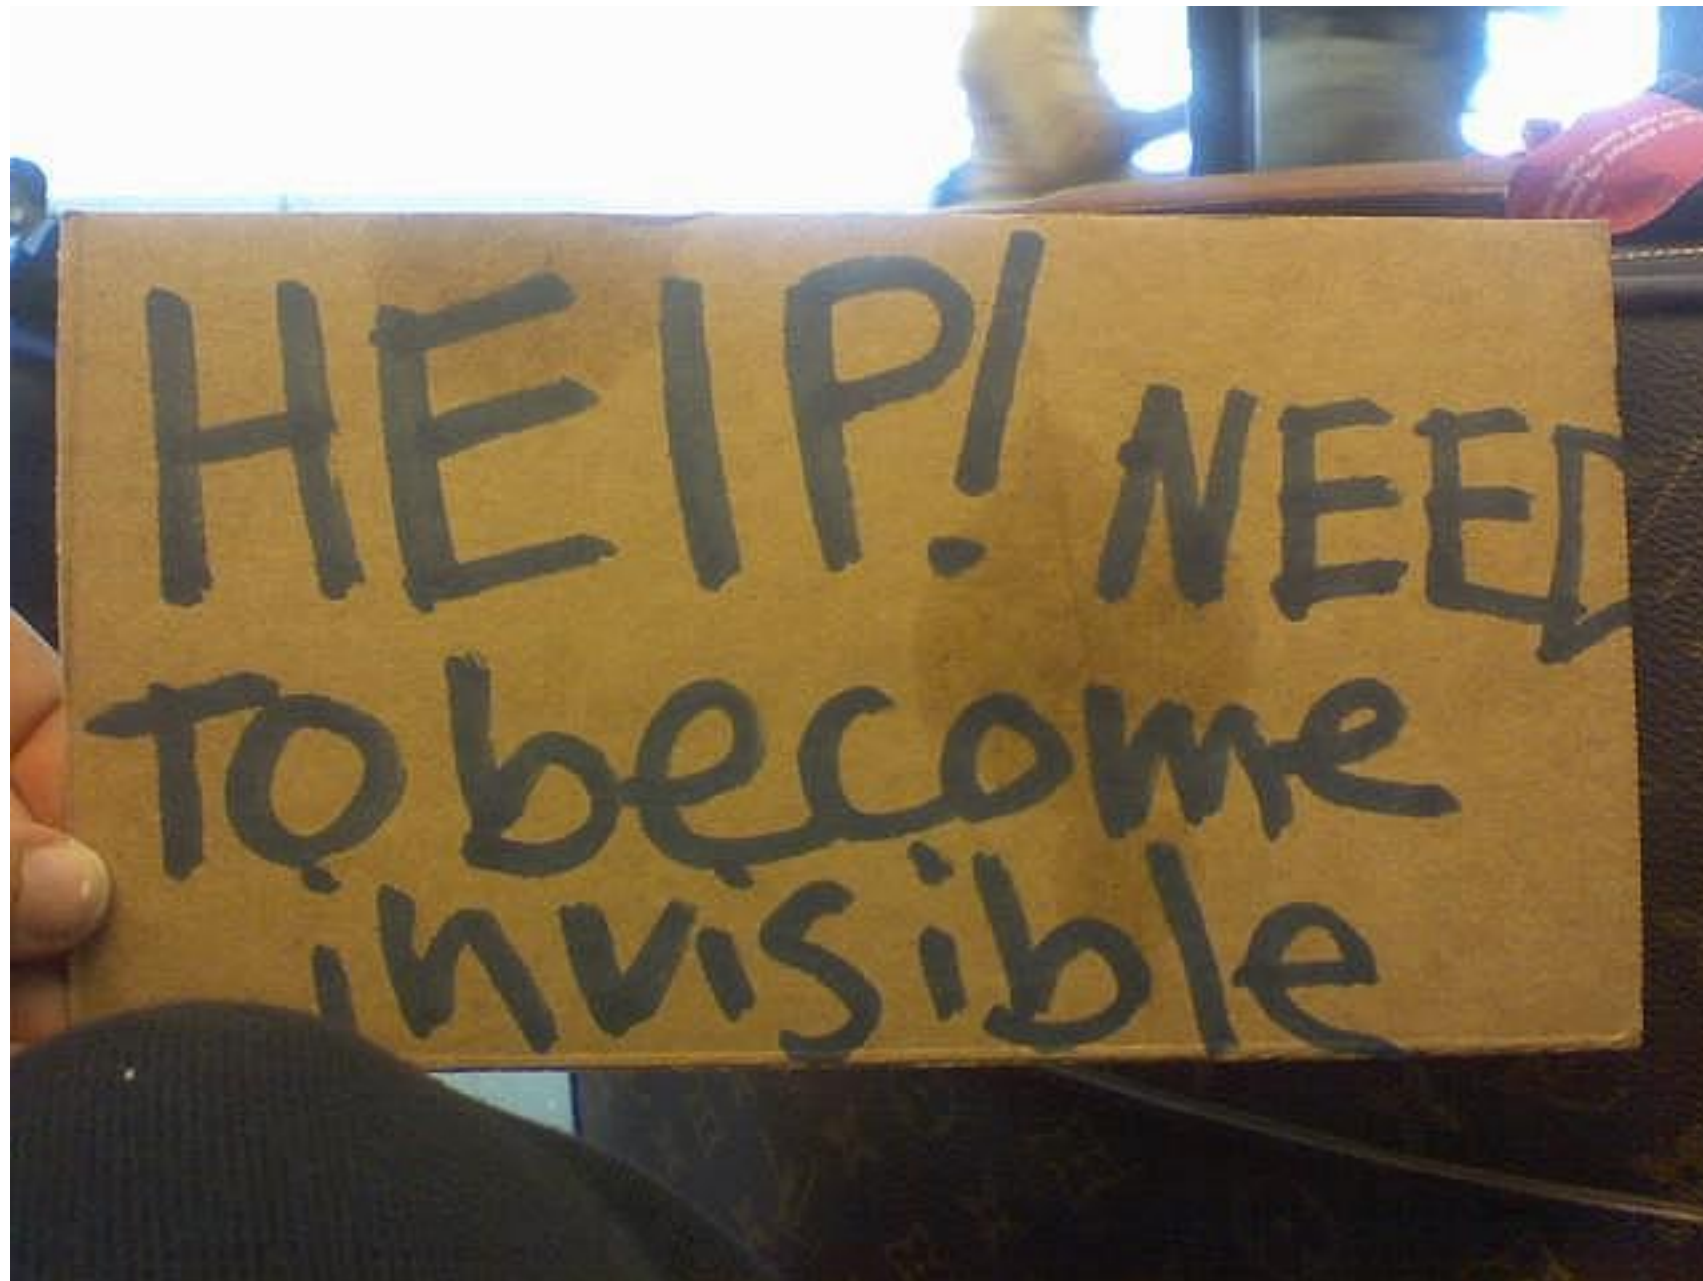 HElP! NEED
To become
invisible